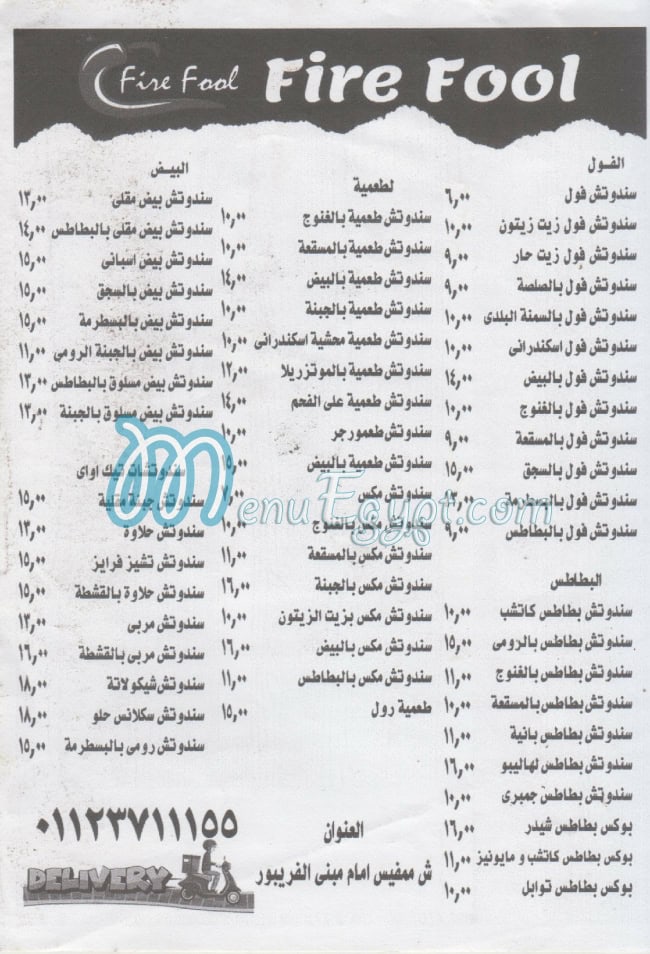 Fire Fool
Fire Fool
الفول
سندوتش فول ٦,٠٠
سندوتش فول زيت زيتون ١٠,٠٠
سندوتش فول زيت حار ٩,٠٠
سندوتش فول بالصلصة ٩,٠٠
سندوتش فول بالسمنة البلدى ١٠,٠٠
سندوتش فول اسكندرانى ١٠,٠٠
سندوتش فول بالبيض ١٤,٠٠
سندوتش فول بالغنوج ١٠,٠٠
سندوتش فول بالمسقعة ٩,٠٠
سندوتش فول بالسجق ١٥,٠٠
سندوتش فول بالبسطرمة
سندوتش فول بالبطاطس ٩,٠٠
البطاطس
سندوتش بطاطس كاتشب ١٠,٠٠
سندوتش بطاطس بالرومى ١٥,٠٠
سندوتش بطاطس بالغنوج ١١,٠٠
سندوتش بطاطس بالمسقعة ١٠,٠٠
سندوتش بطاطس بانية ١١,٠٠
سندوتش بطاطس لهاليبو ١٦,٠٠
سندوتش بطاطس جمبرى ١٠,٠٠
بوكس بطاطس شيدر ١٦,٠٠
بوكس بطاطس كاتشب و مايونيز ١١,٠٠
بوكس بطاطس توابل ١٠,٠٠
لطعمية
سندوتش طعمية بالغنوج ١٠,٠٠
سندوتش طعمية بالمسقعة ١٠,٠٠
سندوتش طعمية بالبيض ١٤,٠٠
سندوتش طعمية بالجبنة ١٠,٠٠
سندوتش طعمية محشية اسكندرانى ١٠,٠٠
سندوتش طعمية بالموتزريلا ١٢,٠٠
سندوتش طعمية على الفحم ١٤,٠٠
سندوتش طعمورجر ١٠,٠٠
سندوتش طعمية بالبيض ١٥,٠٠
سندوتش مكس
سندوتش مكس بالغنوج ١٠,٠٠
سندوتش مكس بالمسقعة ١١,٠٠
سندوتش مكس بالجبنة ١٦,٠٠
سندوتش مكس بزيت الزيتون ١٠,٠٠
سندوتش مكس بالبيض ١٦,٠٠
سندوتش مكس بالبطاطس ١١,٠٠
طعمية رول ١٥,٠٠
البيض
سندوتش بيض مقلى ١٣,٠٠
سندوتش بيض مقلى بالبطاطس ١٤,٠٠
سندوتش بيض اسبانى ١٥,٠٠
سندوتش بيض بالسجق ١٥,٠٠
سندوتش بيض بالبسطرمة ١٥,٠٠
سندوتش بيض بالجبنة الرومى ١١,٠٠
سندوتش بيض مسلوق بالبطاطس ١٣,٠٠
سندوتش بيض مسلوق بالجبنة ١٣,٠٠
سندوتشات تيك اواى
سندوتش جبنة مقلية ١٥,٠٠
سندوتش حلاوة ١٣,٠٠
سندوتش تشيز فرايز ١٥,٠٠
سندوتش حلاوة بالقشطة ١٥,٠٠
سندوتش مربى ١٣,٠٠
سندوتش مربى بالقشطة ١٦,٠٠
سندوتش شيكولاتة ١٨,٠٠
سندوتش سكلانس حلو ١٨,٠٠
سندوتش رومى بالبسطرمة ١٥,٠٠
MenuEgypt.com
العنوان
ش ممفيس امام مبنى الفريبور
٠١١٢٣٧١١١٥٥
DELIVERY